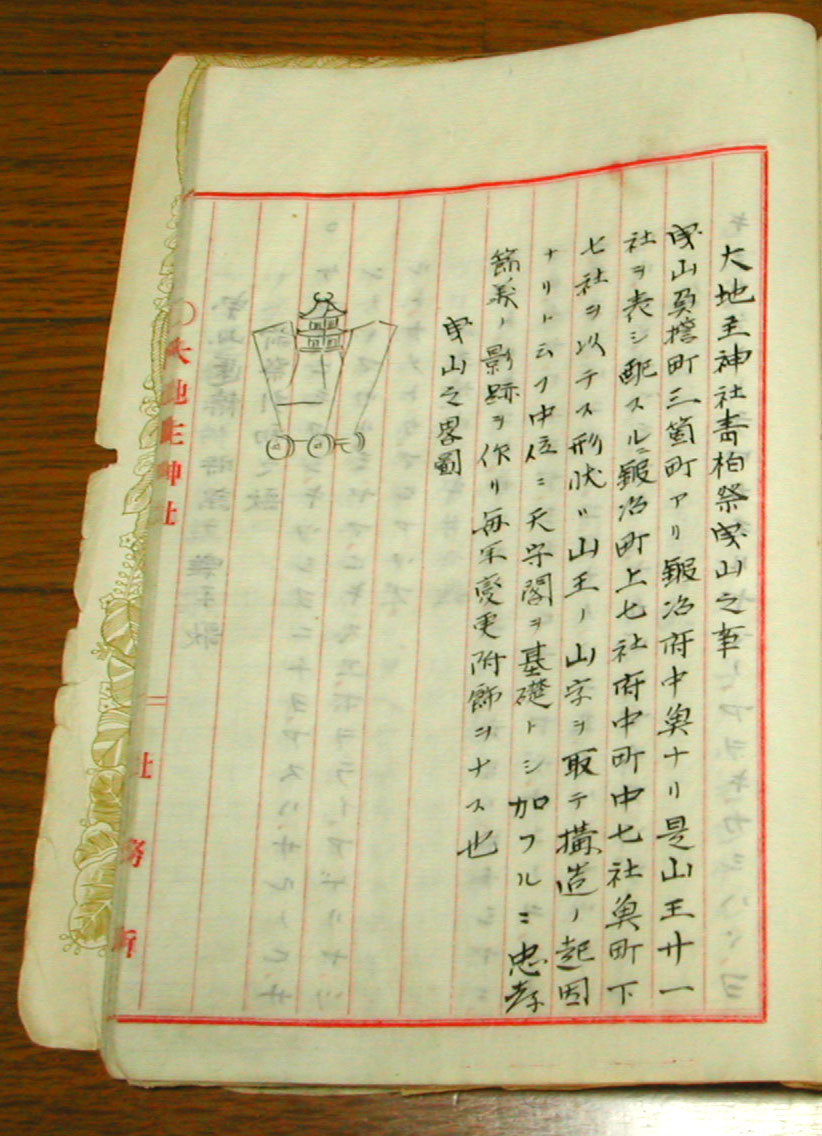 大地主神社青柏祭曳山之事
曳山負擔町三箇町アリ鍛冶府中魚ナリ是山王廿一
社ヲ表シ配スルニ鍛冶町上七社府中町中七社魚町下
七社ヲ以テス形状ハ山王ノ山字ヲ取テ搆造ノ起因
ナリト云フ中位ニ天守閣ヲ基礎トシ加フルニ忠孝
節義ノ影跡ヲ作リ毎年変更附飾ヲナス也
曳山之畧圖
○大地主神社
社務所